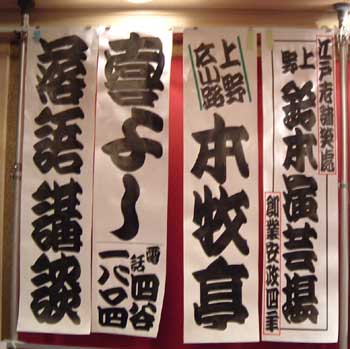 江戸老舗笑處
上野 鈴本演芸場
創業安政四年
上野
広小路
本牧亭
喜よし
電話 四谷
一八〇四
落語講談